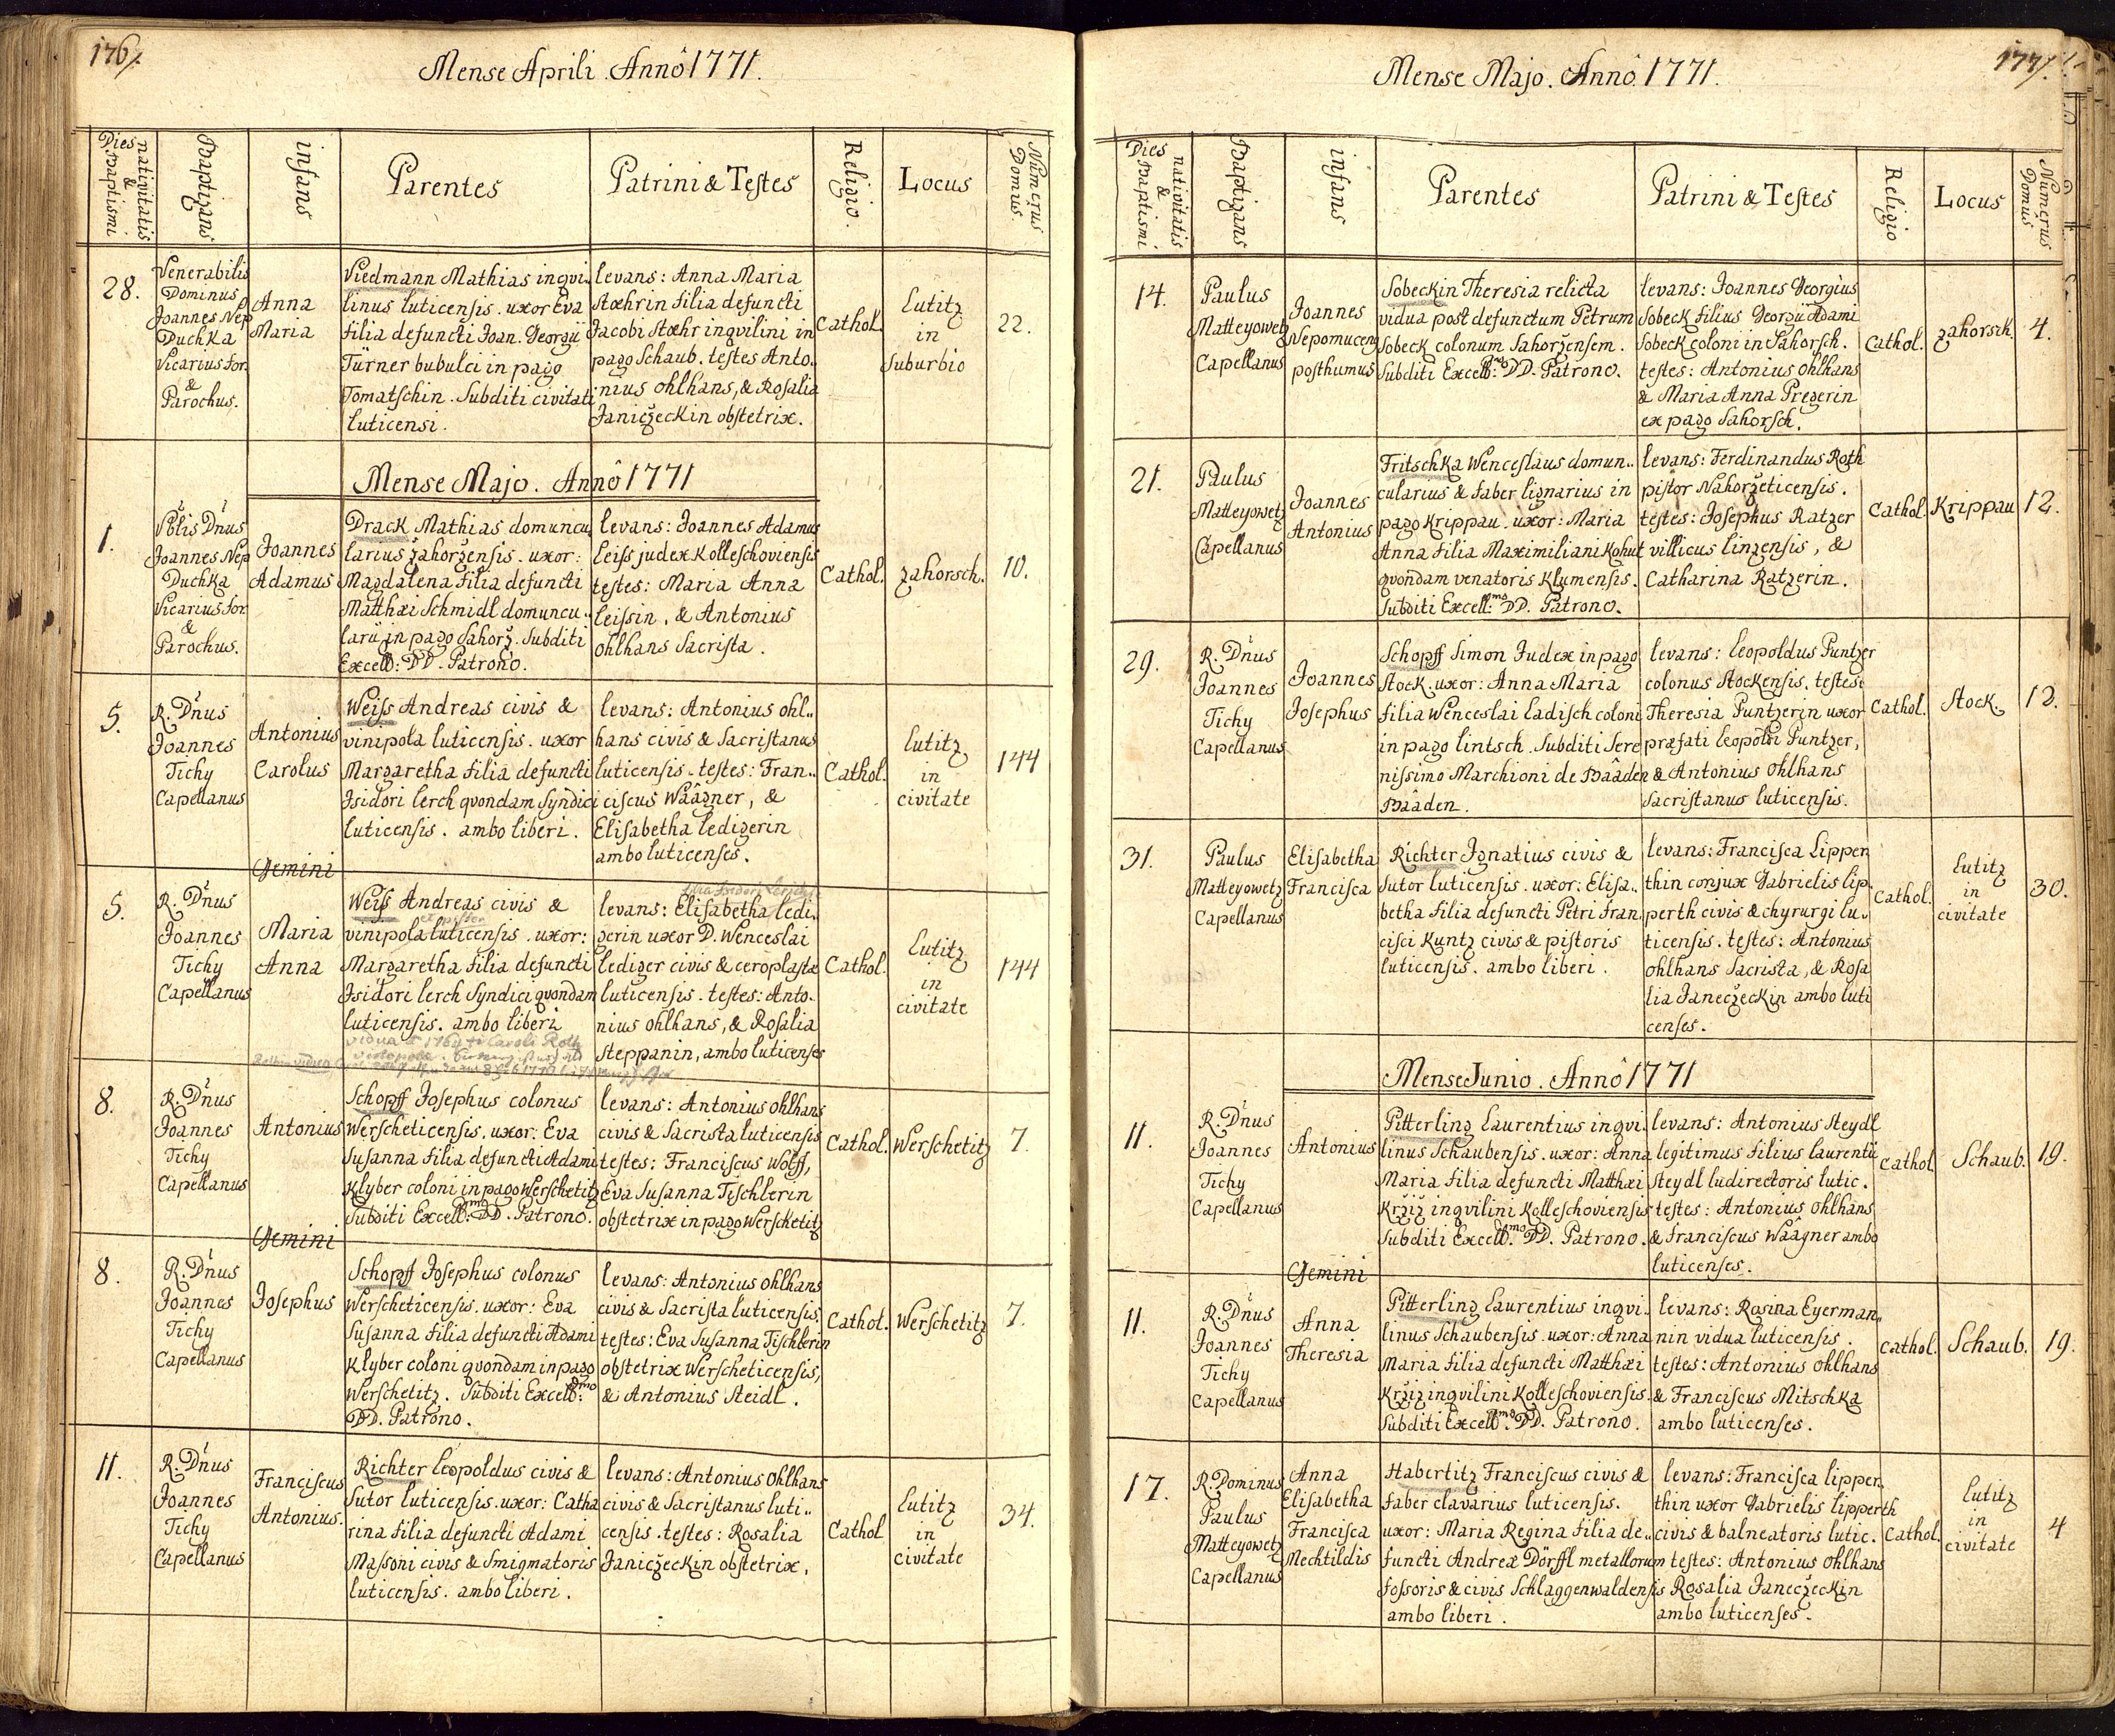 176/.
Mense Aprili. Annô 1771.
Dies nativitatis & Baptismi
Baptizans
infans
Parentes
Patrini & Testes
Religio.
Locus
Numerus Domus.
28.
Venerabilis
Dominus
Joannes Nep
Duchka
Vicarius for.
&
Parochus.
Anna
Maria
Viedmann Mathias inqvi-
linus luticensis. uxor Eva
filia defuncti Joan. Georgii
Türner bubulci in pago
Tomatschin. Subditi civitati
luticensi.
levans: Anna Maria
Stæhrin filia defuncti
Jacobi Stæhr inqvilini in
pago Schaub. testes Anto-
nius ohlhans, & Rosalia
Janiczeckin obstetrix.
Cathol.
Lutitz
in
suburbio
22.
Mense Majo. Annô 1771
1.
Vblis Dnus
Joannes Nep
Duchka
Vicarius for.
&
Parochus.
Joannes
Adamus
Drack Mathias domuncu
larius zahorzensis. uxor:
Magdalena filia defuncti
Matthæi Schmidl domuncu-
larii in pago Sahorz. Subditi
Excell: DD. Patrono.
levans: Joannes Adamus
Leiss judex Kolleschoviensis
testes: Maria Anna
Leissin, & Antonius
ohlhans Sacrista.
Cathol.
zahorsch.
10.
5.
R. Dnus
Joannes
Tichy
Capellanus
Antonius
Carolus
Weiss Andreas civis &
vinipola luticensis. uxor
Margaretha filia defuncti
Isidori Lerch qvondam Syndici
luticensis. ambo liberi.
levans: Antonius ohl-
hans civis & Sacristanus
luticensis. testes: Fran-
ciscus Waâgner, &
Elisabetha Ledigerin
ambo luticenses.
Cathol.
Lutitz
in
civitate
144
Gemini
5.
R. Dnus
Joannes
Tichy
Capellanus
Maria
Anna
Weiss Andreas civis &
et pistor
vinipola luticensis. uxor:
Margaretha filia defuncti
Isidori Lerch Syndici qvondam
luticensis. ambo liberi
vidua 1764 Caroli Roth
filia Isidori Lerch
levans: Elisabetha Ledi-
gerin uxor D. Wenceslai
Lediger civis & ceroplastæ
luticensis. testes: Anto-
nius ohlhans, & Rosalia
Steppanin, ambo luticenses
Cathol.
Lutitz
in
civitate
144
8.
R. Dnus
Joannes
Tichy
Capellanus
Antonius
Schopff Josephus colonus
Werscheticensis. uxor: Eva
Susanna filia defuncti Adami
Klyber coloni in pago Werschetitz
Subditi Excell:mo DD. Patrono.
levans: Antonius ohlhans
civis & Sacrista luticensis
testes: Franciscus Wolff,
Eva Susanna Tischlerin
obstetrix in pago Werschetitz
Cathol.
Werschetitz
7.
Gemini
8.
R. Dnus
Joannes
Tichy
Capellanus
Josephus
Schopff Josephus colonus
Werscheticensis. uxor: Eva
Susanna filia defuncti Adami
Klyber coloni qvondam in pago
Werschetitz. Subditi Excell:mo
DD. Patrono.
levans: Antonius ohlhans
civis & Sacrista luticensis.
testes: Eva Susanna Tischlerin
obstetrix Werscheticensis,
& Antonius Steidl.
Cathol.
Werschetitz
7.
11.
R. Dnus
Joannes
Tichy
Capellanus
Franciscus
Antonius.
Richter Leopoldus civis &
Sutor luticensis. uxor: Catha
rina filia defuncti Adami
Massoni civis & Smigmatoris
luticensis. ambo liberi.
levans: Antonius ohlhans
civis & Sacristanus luti-
censis. testes: Rosalia
Janiczeckin obstetrix.
Cathol
Lutitz
in
civitate
34.
177/.
Mense Majo. Annô. 1771.
Dies nativitatis & Baptismi
Baptizans
infans
Parentes
Patrini & Testes
Religio
Locus
Numerus Domus
14.
Paulus
Matteyowetz
Capellanus
Joannes
Nepomucenus
posthumus
Sobeckin Theresia relicta
vidua post defunctum Petrum
Sobeck colonum Sahorzensem.
Subditi Excell:mo DD. Patrono.
levans: Joannes Georgius
Sobeck filius Georgii Adami
Sobeck coloni in Sahorsch.
testes: Antonius ohlhans
& Maria Anna Pregerin
ex pago Sahorsch.
Cathol.
zahorsch.
4.
21.
Paulus
Matteyowetz
Capellanus
Joannes
Antonius
Fritschka Wenceslaus domun-
cularius & faber lignarius in
pago Krippau. uxor: Maria
Anna filia Maximiliani Kohut
qvondam venatoris Klumensis.
Subditi Excell:mo DD. Patrono.
levans: Ferdinandus Roth
pistor Nahorzeticensis.
testes: Josephus Ratzer
villicus linzensis, &
Catharina Ratzerin.
Cathol.
Krippau
12.
29.
R. Dnus
Joannes
Tichy
Capellanus
Joannes
Josephus
Schopff Simon Judex in pago
Stock. uxor: Anna Maria
filia Wenceslai Ladisch coloni
in pago lintsch. Subditi Sere
nissimo Marchioni de Baâden
Baâden.
levans: Leopoldus Puntzer
colonus Stockensis. testes:
Theresia Puntzerin uxor
præfati Leopoldi Puntzer,
& Antonius Ohlhans
Sacristanus luticensis.
Cathol.
Stock.
12.
31.
Paulus
Matteyowetz
Capellanus
Elisabetha
Francisca
Richter Ignatius civis &
Sutor luticensis. uxor: Elisa-
betha filia defuncti Petri Fran-
cisci Kuntz civis & pistoris
luticensis. ambo liberi.
levans: Francisca Lippen
thin conjux Gabrielis Lip-
perth civis & chyrurgi lu-
ticensis. testes: Antonius
ohlhans Sacrista, & Rosa
lia Janeczeckin ambo luti
censes.
Cathol.
Lutitz
in
civitate
30.
Mense Junio. Annô 1771
11.
R. Dnus
Joannes
Tichy
Capellanus
Antonius
Pitterling Laurentius inqvi-
linus Schaubensis. uxor: Anna
Maria filia defuncti Matthæi
Krziz inqvilini Kolleschoviensis
Subditi Excell:mo DD. Patrono.
levans: Antonius Steydl
legitimus filius Laurentii
Steydl ludirectoris lutic.
testes: Antonius ohlhans
& Franciscus Waâgner ambo
luticenses.
Cathol
Schaub.
19.
Gemini
11.
R. Dnus
Joannes
Tichy
Capellanus
Anna
Theresia
Pitterling Laurentius inqvi-
linus Schaubensis. uxor: Anna
Maria filia defuncti Matthæi
Krziz inqvilini Kolleschoviensis.
Subditi Excell:mo DD. Patrono.
levans: Rosina Eyerman-
nin vidua luticensis.
testes: Antonius ohlhans
& Franciscus Mitschka
ambo luticenses.
Cathol.
Schaub.
19.
17.
R. Dominus
Paulus
Matteyowetz
Capellanus
Anna
Elisabetha
Francisca
Mechtildis
Habertitz Franciscus civis &
faber clavarius luticensis.
uxor: Maria Regina filia de-
functi Andreæ Dörffl metallorum
fossoris & civis Schlaggenwaldensis
ambo liberi.
levans: Francisca Lipper-
thin uxor Gabrielis Lipperth
civis & balneatoris lutic.
testes: Antonius ohlhans
Rosalia Janeczeckin
ambo luticenses.
Cathol.
Lutitz
in
civitate
4